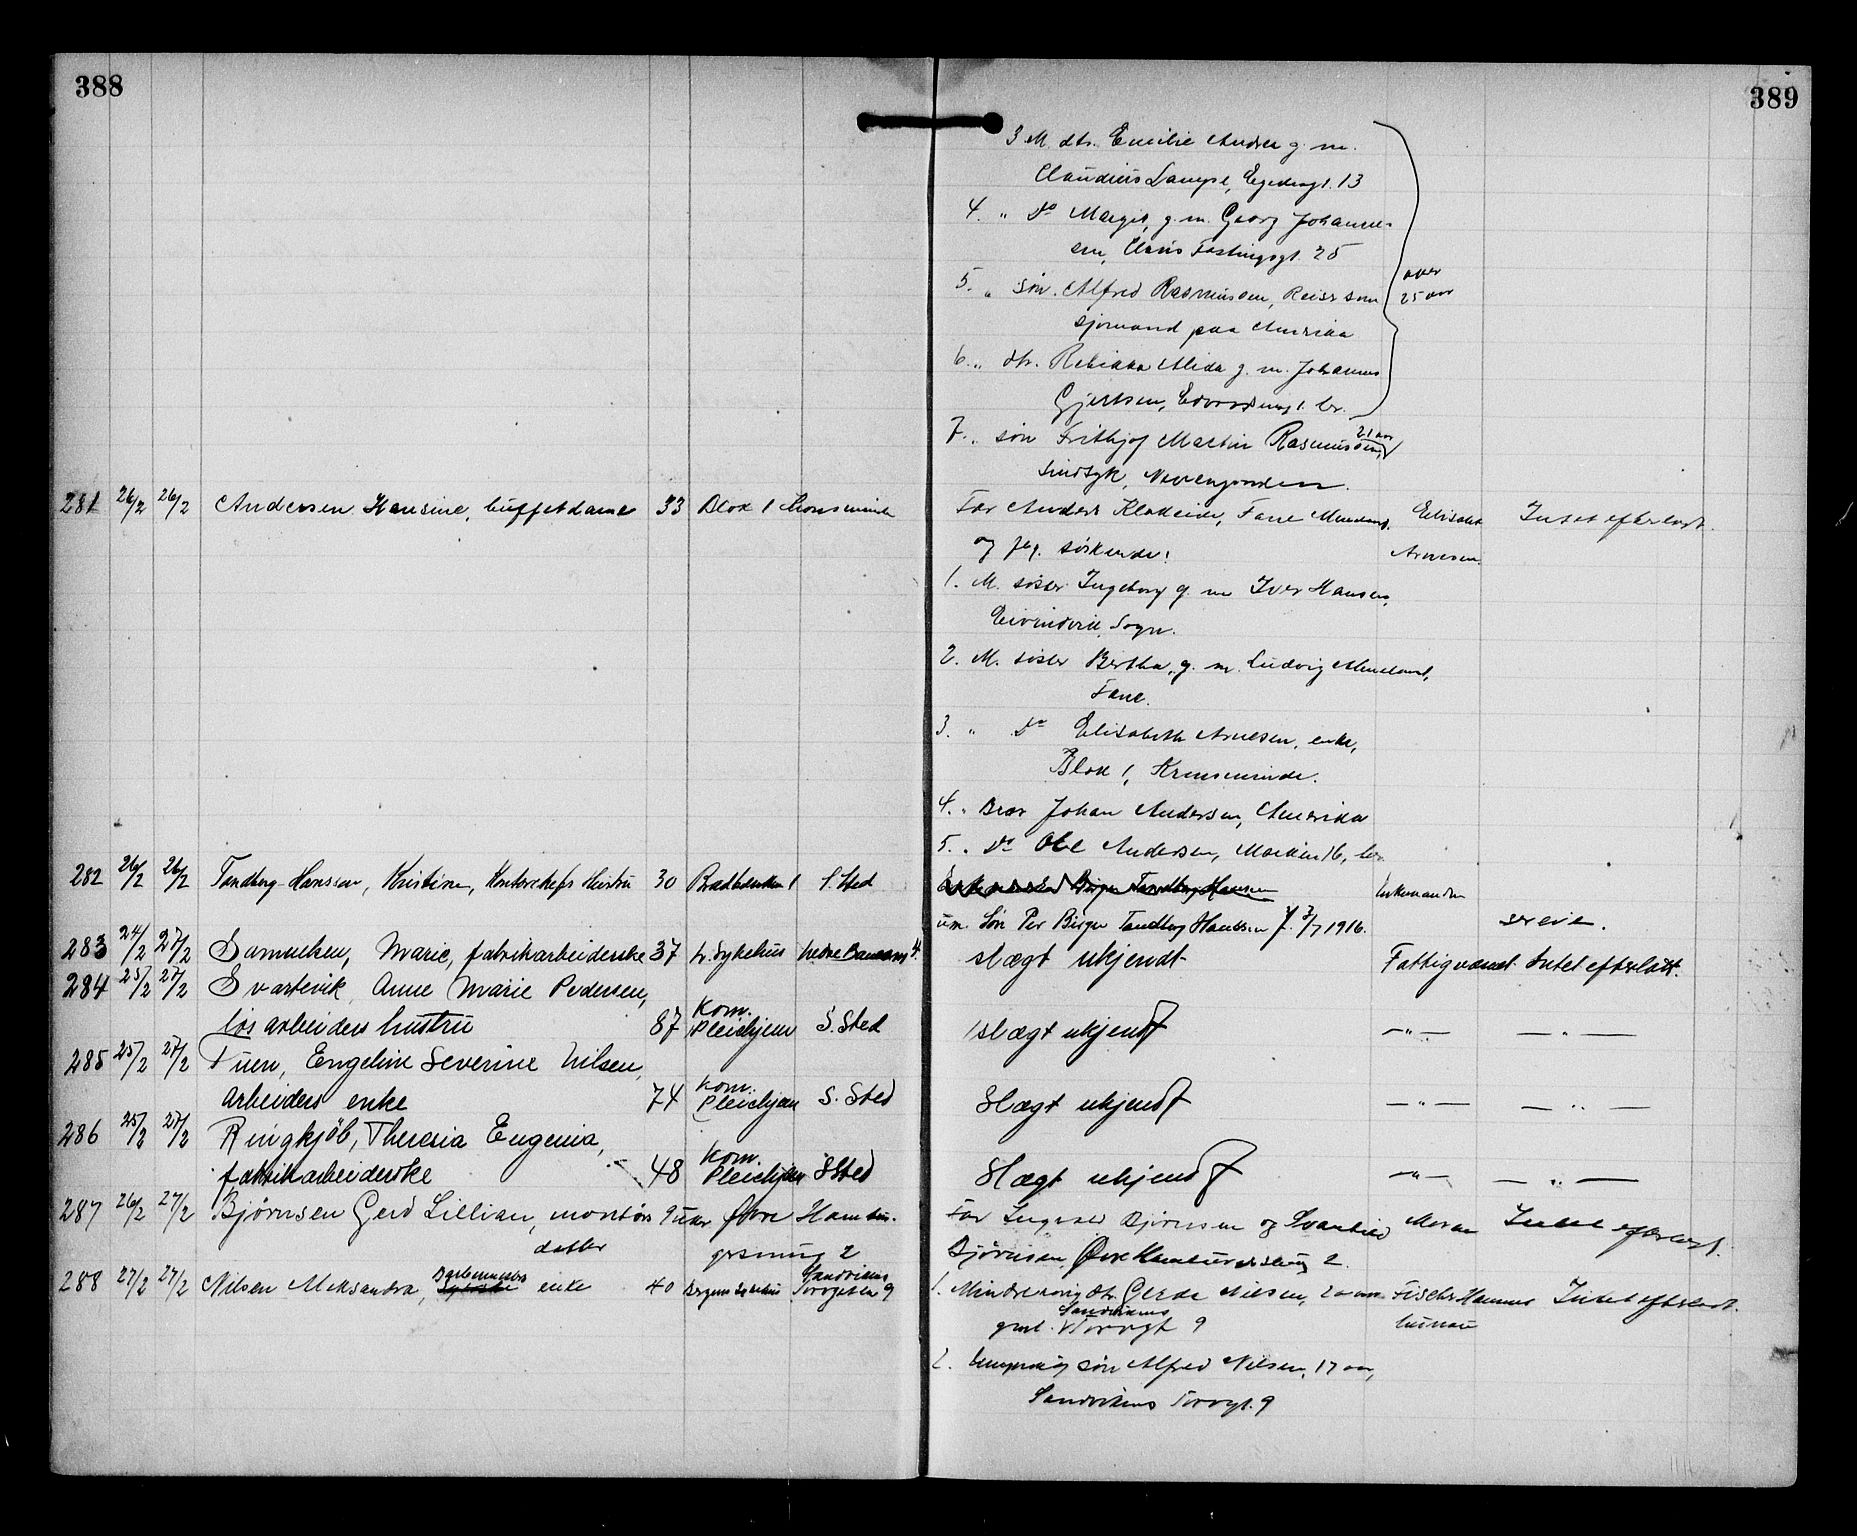 388
389
3 M. dtr. Emilie Andrea g. m.
Claudius Lampe, Egedesgt. 13
4. " Do Margit, g. m. Georg Johannes-
sen, Claus Fastingsgt. 25
5. " søn. Alfred Rasmussen, Reiser som
sjømand paa Amerika
over
25 aar
6. " dtr. Rebikka Alida g. m. Johannes
Gjertsen, hr.
7. " søn Frithjof Martin Rasmussen, 21 aar
Sindsyk, Nevengaarden.
281 26/2 26/2 Andersen Hansine, buffetdame 33 Blok 1 Kronsminde
Far Anders Klokeide, Fane
og flg. søskende:
Elisabet
Arnesen.
Intet efterladt.
1. M. søster Ingeborg g. m Iver Hansen,
Eivindvik, Sogn.
2. M. søster Bertha, g. m. Ludvig
Fane.
3. " Do Elisabeth Arnesen, enke,
Blok 1, Kronsminde.
4. " Bror Johan Andersen, Amerika
5. " Do Ole Andersen, Marken 16, hr.
282 26/2 26/2 Tandberg-Hanssen, Kristine, Kontorchefs Hustru 30 Bradbenken 1 S. Sted
Enkemand Birger Tandberg Hanssen
um. Søn Per Birger Tandberg Hanssen f. 3/7 1916.
Enkemanden
283 24/2 27/2 Samuelsen, Marie, fabrikarbeiderske 37 L. Sykehus Nedre 4.
slægt ukjendt
Fattigvæsenet Intet efterladt.
284 25/2 27/2 Svartevik, Anne Marie Pedersen,
løsarbeiders hustru 87 Kom. Pleiehjem S. Sted
slægt ukjendt — " — — " —
285 25/2 27/2 Tuen, Engeline Severine Nilsen,
arbeiders enke 74 Kom. Pleiehjem S. Sted
Slægt ukjendt — " — — " —
286 25/2 27/2 Ringkjøb, Theresia Eugenia,
fabrikarbeiderske 48 Kom. Pleiehjem S Sted
Slægt ukjendt — " — — " —
287 26/2 27/2 Bjørnsen Gerd Lillian, montørs 9 uker Øvre Hambur-
datter gersmug 2
Far Ingvald Bjørnsen og Svanhild
Bjørnsen, Øvre Hamburgersmug 2.
Moren Intet efterladt.
288 27/2 27/2 Nilsen Aleksandra, enke 40 Bergens Sykehus Sandvikens Torvgaten 9
1. Mindreaarig dtr. Gerda Nilsen, 20 aar
gml. Sandvikens Torvgt 9
Intet efterladt.
2. Umyndig søn Alfred Nilsen, 17 aar,
Sandvikens Torvgt. 9